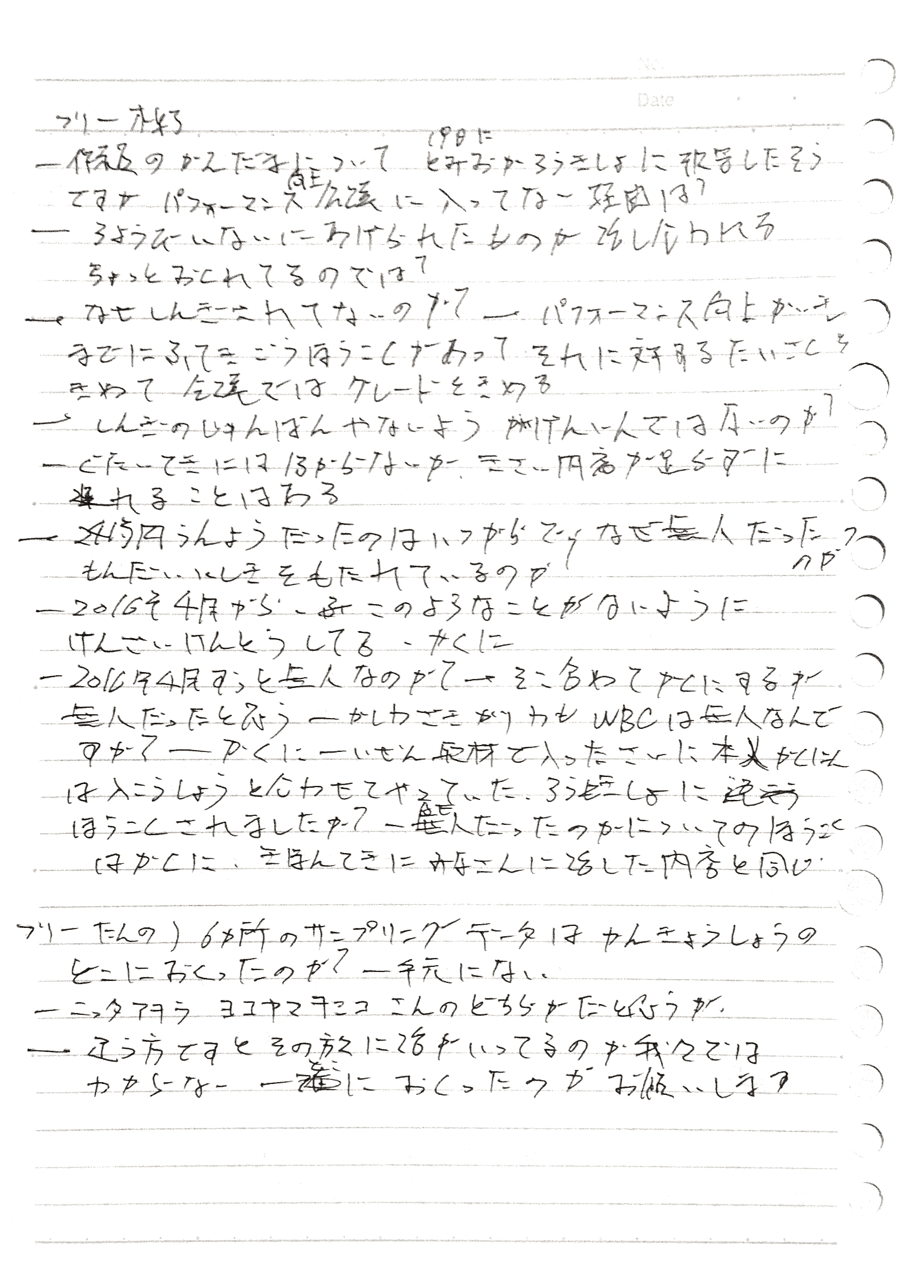 No.
Date
フリー木野
19日に
ー作業員のかえだまについて とみおかろうきしょに報告したそう
ですが パフォーマンス向上会議に入ってなー理由は?
ー りょうひいないにあげられたものが話し合われる
ちょっとおくれてるのでは?
ー なぜしんぎされてないのか? ー パフォーマンス向上かいぎ
までにふてきごうほうこくがあって それに対するたいさくを
きめて 会議ではグレードをきめる
ー しんぎのじゅんばんやないようがげんいんではないのか?
ー ぐたいてきにはわからないが、きさい内容が足らずに
遅れることはある
ー うんようだったのはいつからで、なぜ無人だったのか
もんだいいしきをもたれているのか
ー 2016年4月から、このようなことがないように
けんさいけんとうしてる・かくに
ー 2016年4月ずっと無人なのか? ー そこ含めてかくにするが
無人だったと思う ー かしわざきかりわも WBCは無人なんで
すか? ー かくに ー いぜん取材で入ったさいに本人かくにん
は入こうしょうと合わせてやっていた、ろうきしょに
ほうこくされましたか? ー 無人だったのかについてのほうこく
はかくに、きほんてきにみなさんに話した内容と同じ
フリーたんの) 6か所のサンプリングデータはかんきょうしょうの
どこにおくったのか? ー 手元にない
ー ニッタアキラ ヨコヤマ さんのどちらかだと思うが、
ー 違う方ですとその方に話がいってるのか我々では
わからなー ー誰におくったのかお願いします